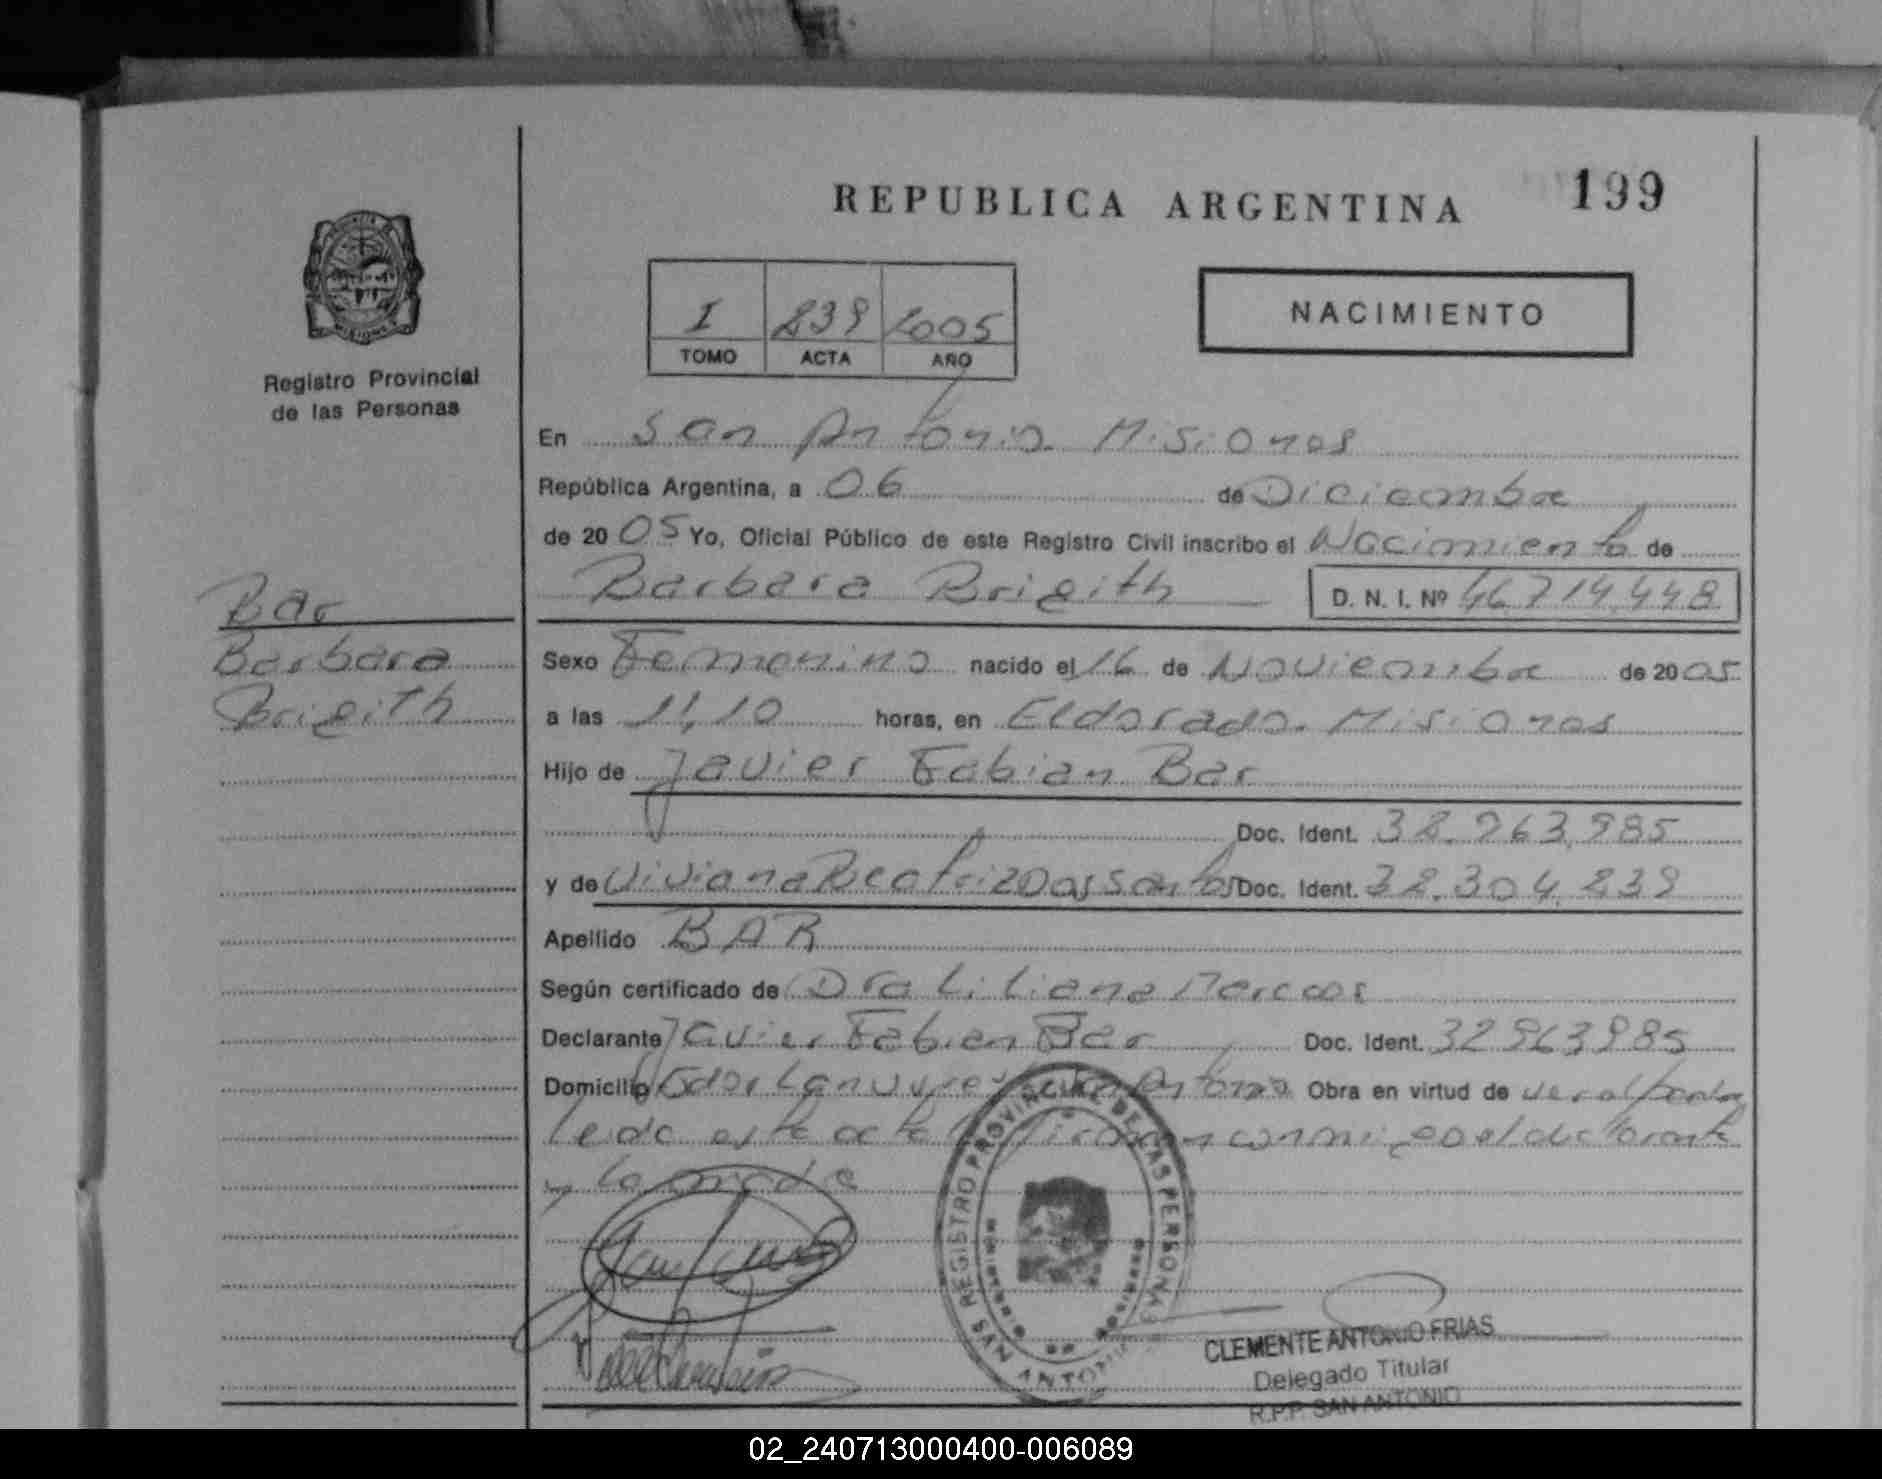 REPUBLICA ARGENTINA 199
I 239 2005
TOMO ACTA AÑO
NACIMIENTO
MISIONES
Registro Provincial
de las Personas
En San Antonio Misiones
República Argentina, a 06 de Diciembre
de 2005 Yo, Oficial Público de este Registro Civil inscribo el Nacimiento de
Barbara Brigith D. N. I. Nº 46.714.448
Bar
Barbara
Brigith
Sexo Femenino nacido el 16 de Noviembre de 2005
a las 11,10 horas, en Eldorado. Misiones
Hijo de Javier Fabian Bar
Doc. Ident. 32.963.985
y de Viviana Beatriz Dos Santos Doc. Ident. 32.304.239
Apellido BAR
Según certificado de Dra Liliana
Declarante Javier Fabian Bar Doc. Ident. 32963985
Domicilio Obra en virtud de
leida esta acta firman conmigo el declarante
y la madre
REGISTRO PROVINCIAL DE LAS PERSONAS
SAN ANTONIO
MISIONES
CLEMENTE ANTONIO FRIAS
Delegado Titular
R.P.P. SAN ANTONIO
02_240713000400-006089